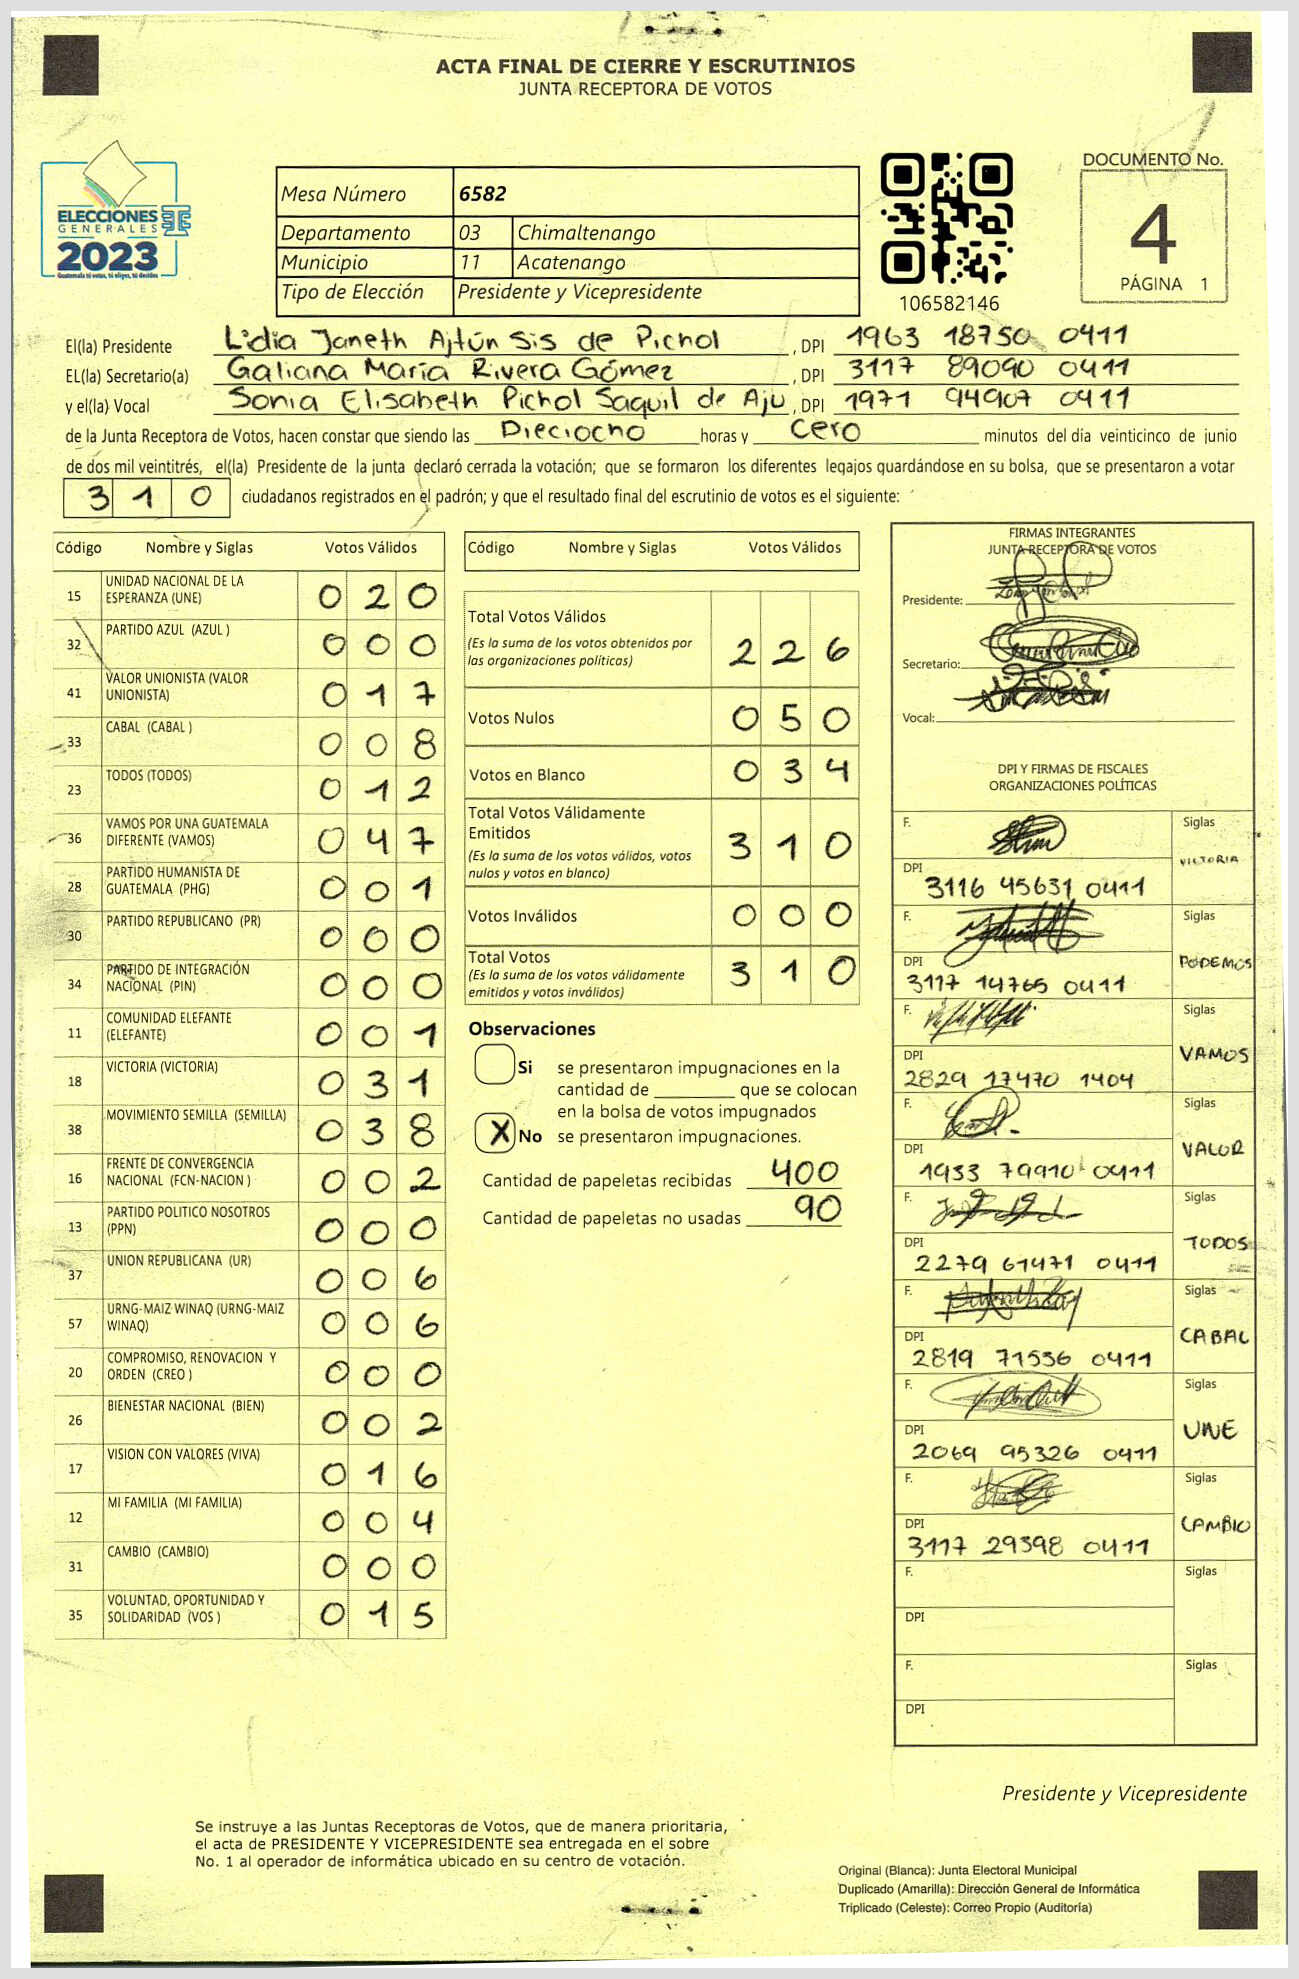 ACTA FINAL DE CIERRE Y ESCRUTINIOS
JUNTA RECEPTORA DE VOTOS
ELECCIONES
GENERALES
2023
Guatemala tú votas, tú eliges, tú decides
Mesa Número 6582
Departamento 03 Chimaltenango
Municipio 11 Acatenango
Tipo de Elección Presidente y Vicepresidente
106582146
DOCUMENTO No.
4
PÁGINA 1
El(la) Presidente Lidia Janeth Ajtún Sis de Pichol, DPI 1963 18750 0411
EL(la) Secretario(a) Galiana María Rivera Gómez, DPI 3117 89090 0411
y el(la) Vocal Sonia Elisabeth Pichol Saquil de Aju, DPI 1971 94907 0411
de la Junta Receptora de Votos, hacen constar que siendo las Dieciocho horas y Cero minutos del día veinticinco de junio
de dos mil veintitrés, el(la) Presidente de la junta declaró cerrada la votación; que se formaron los diferentes legajos guardándose en su bolsa, que se presentaron a votar
310 ciudadanos registrados en el padrón; y que el resultado final del escrutinio de votos es el siguiente:
Código Nombre y Siglas Votos Válidos
15 UNIDAD NACIONAL DE LA
ESPERANZA (UNE) 020
32 PARTIDO AZUL (AZUL ) 000
41 VALOR UNIONISTA (VALOR
UNIONISTA) 017
33 CABAL (CABAL ) 008
23 TODOS (TODOS) 012
36 VAMOS POR UNA GUATEMALA
DIFERENTE (VAMOS) 047
28 PARTIDO HUMANISTA DE
GUATEMALA (PHG) 001
30 PARTIDO REPUBLICANO (PR) 000
34 PARTIDO DE INTEGRACIÓN
NACIONAL (PIN) 000
11 COMUNIDAD ELEFANTE
(ELEFANTE) 001
18 VICTORIA (VICTORIA) 031
38 MOVIMIENTO SEMILLA (SEMILLA) 038
16 FRENTE DE CONVERGENCIA
NACIONAL (FCN-NACION ) 002
13 PARTIDO POLITICO NOSOTROS
(PPN) 000
37 UNION REPUBLICANA (UR) 006
57 URNG-MAIZ WINAQ (URNG-MAIZ
WINAQ) 006
20 COMPROMISO, RENOVACION Y
ORDEN (CREO ) 000
26 BIENESTAR NACIONAL (BIEN) 002
17 VISION CON VALORES (VIVA) 016
12 MI FAMILIA (MI FAMILIA) 004
31 CAMBIO (CAMBIO) 000
35 VOLUNTAD, OPORTUNIDAD Y
SOLIDARIDAD (VOS ) 015
Código Nombre y Siglas Votos Válidos
Total Votos Válidos
(Es la suma de los votos obtenidos por
las organizaciones políticas) 226
Votos Nulos 050
Votos en Blanco 034
Total Votos Válidamente
Emitidos
(Es la suma de los votos válidos, votos
nulos y votos en blanco) 310
Votos Inválidos 000
Total Votos
(Es la suma de los votos válidamente
emitidos y votos inválidos) 310
Observaciones
Si se presentaron impugnaciones en la
cantidad de ________ que se colocan
en la bolsa de votos impugnados
X No se presentaron impugnaciones.
Cantidad de papeletas recibidas 400
Cantidad de papeletas no usadas 90
FIRMAS INTEGRANTES
JUNTA RECEPTORA DE VOTOS
Presidente:
Secretario:
Vocal:
DPI Y FIRMAS DE FISCALES
ORGANIZACIONES POLÍTICAS
F. Siglas
VICTORIA
DPI
3116 45631 0411
F. Siglas
PODEMOS
DPI
3117 14765 0411
F. Siglas
VAMOS
DPI
2829 17470 1404
F. Siglas
VALOR
DPI
1933 79910 0411
F. Siglas
TODOS
DPI
2279 61471 0411
F. Siglas
CABAL
DPI
2819 71536 0411
F. Siglas
UNE
DPI
2069 95326 0411
F. Siglas
CAMBIO
DPI
3117 29398 0411
F. Siglas
DPI
F. Siglas
DPI
Presidente y Vicepresidente
Se instruye a las Juntas Receptoras de Votos, que de manera prioritaria,
el acta de PRESIDENTE Y VICEPRESIDENTE sea entregada en el sobre
No. 1 al operador de informática ubicado en su centro de votación.
Original (Blanca): Junta Electoral Municipal
Duplicado (Amarilla): Dirección General de Informática
Triplicado (Celeste): Correo Propio (Auditoría)